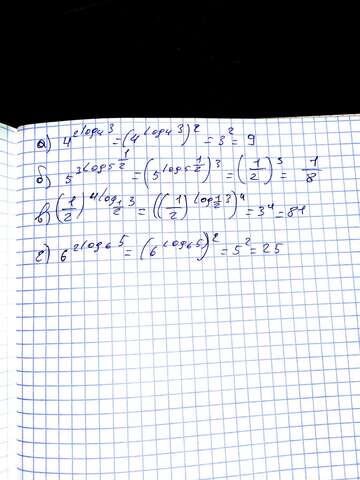 а) 4^{2log_4 3} = (4^{log_4 3})^2 = 3^2 = 9
б) 5^{3log_5 \frac{1}{2}} = (5^{log_5 \frac{1}{2}})^3 = (\frac{1}{2})^3 = \frac{1}{8}
в) (\frac{1}{2})^{4log_{\frac{1}{2}} 3} = ((\frac{1}{2})^{log_{\frac{1}{2}} 3})^4 = 3^4 = 81
г) 6^{2log_6 5} = (6^{log_6 5})^2 = 5^2 = 25